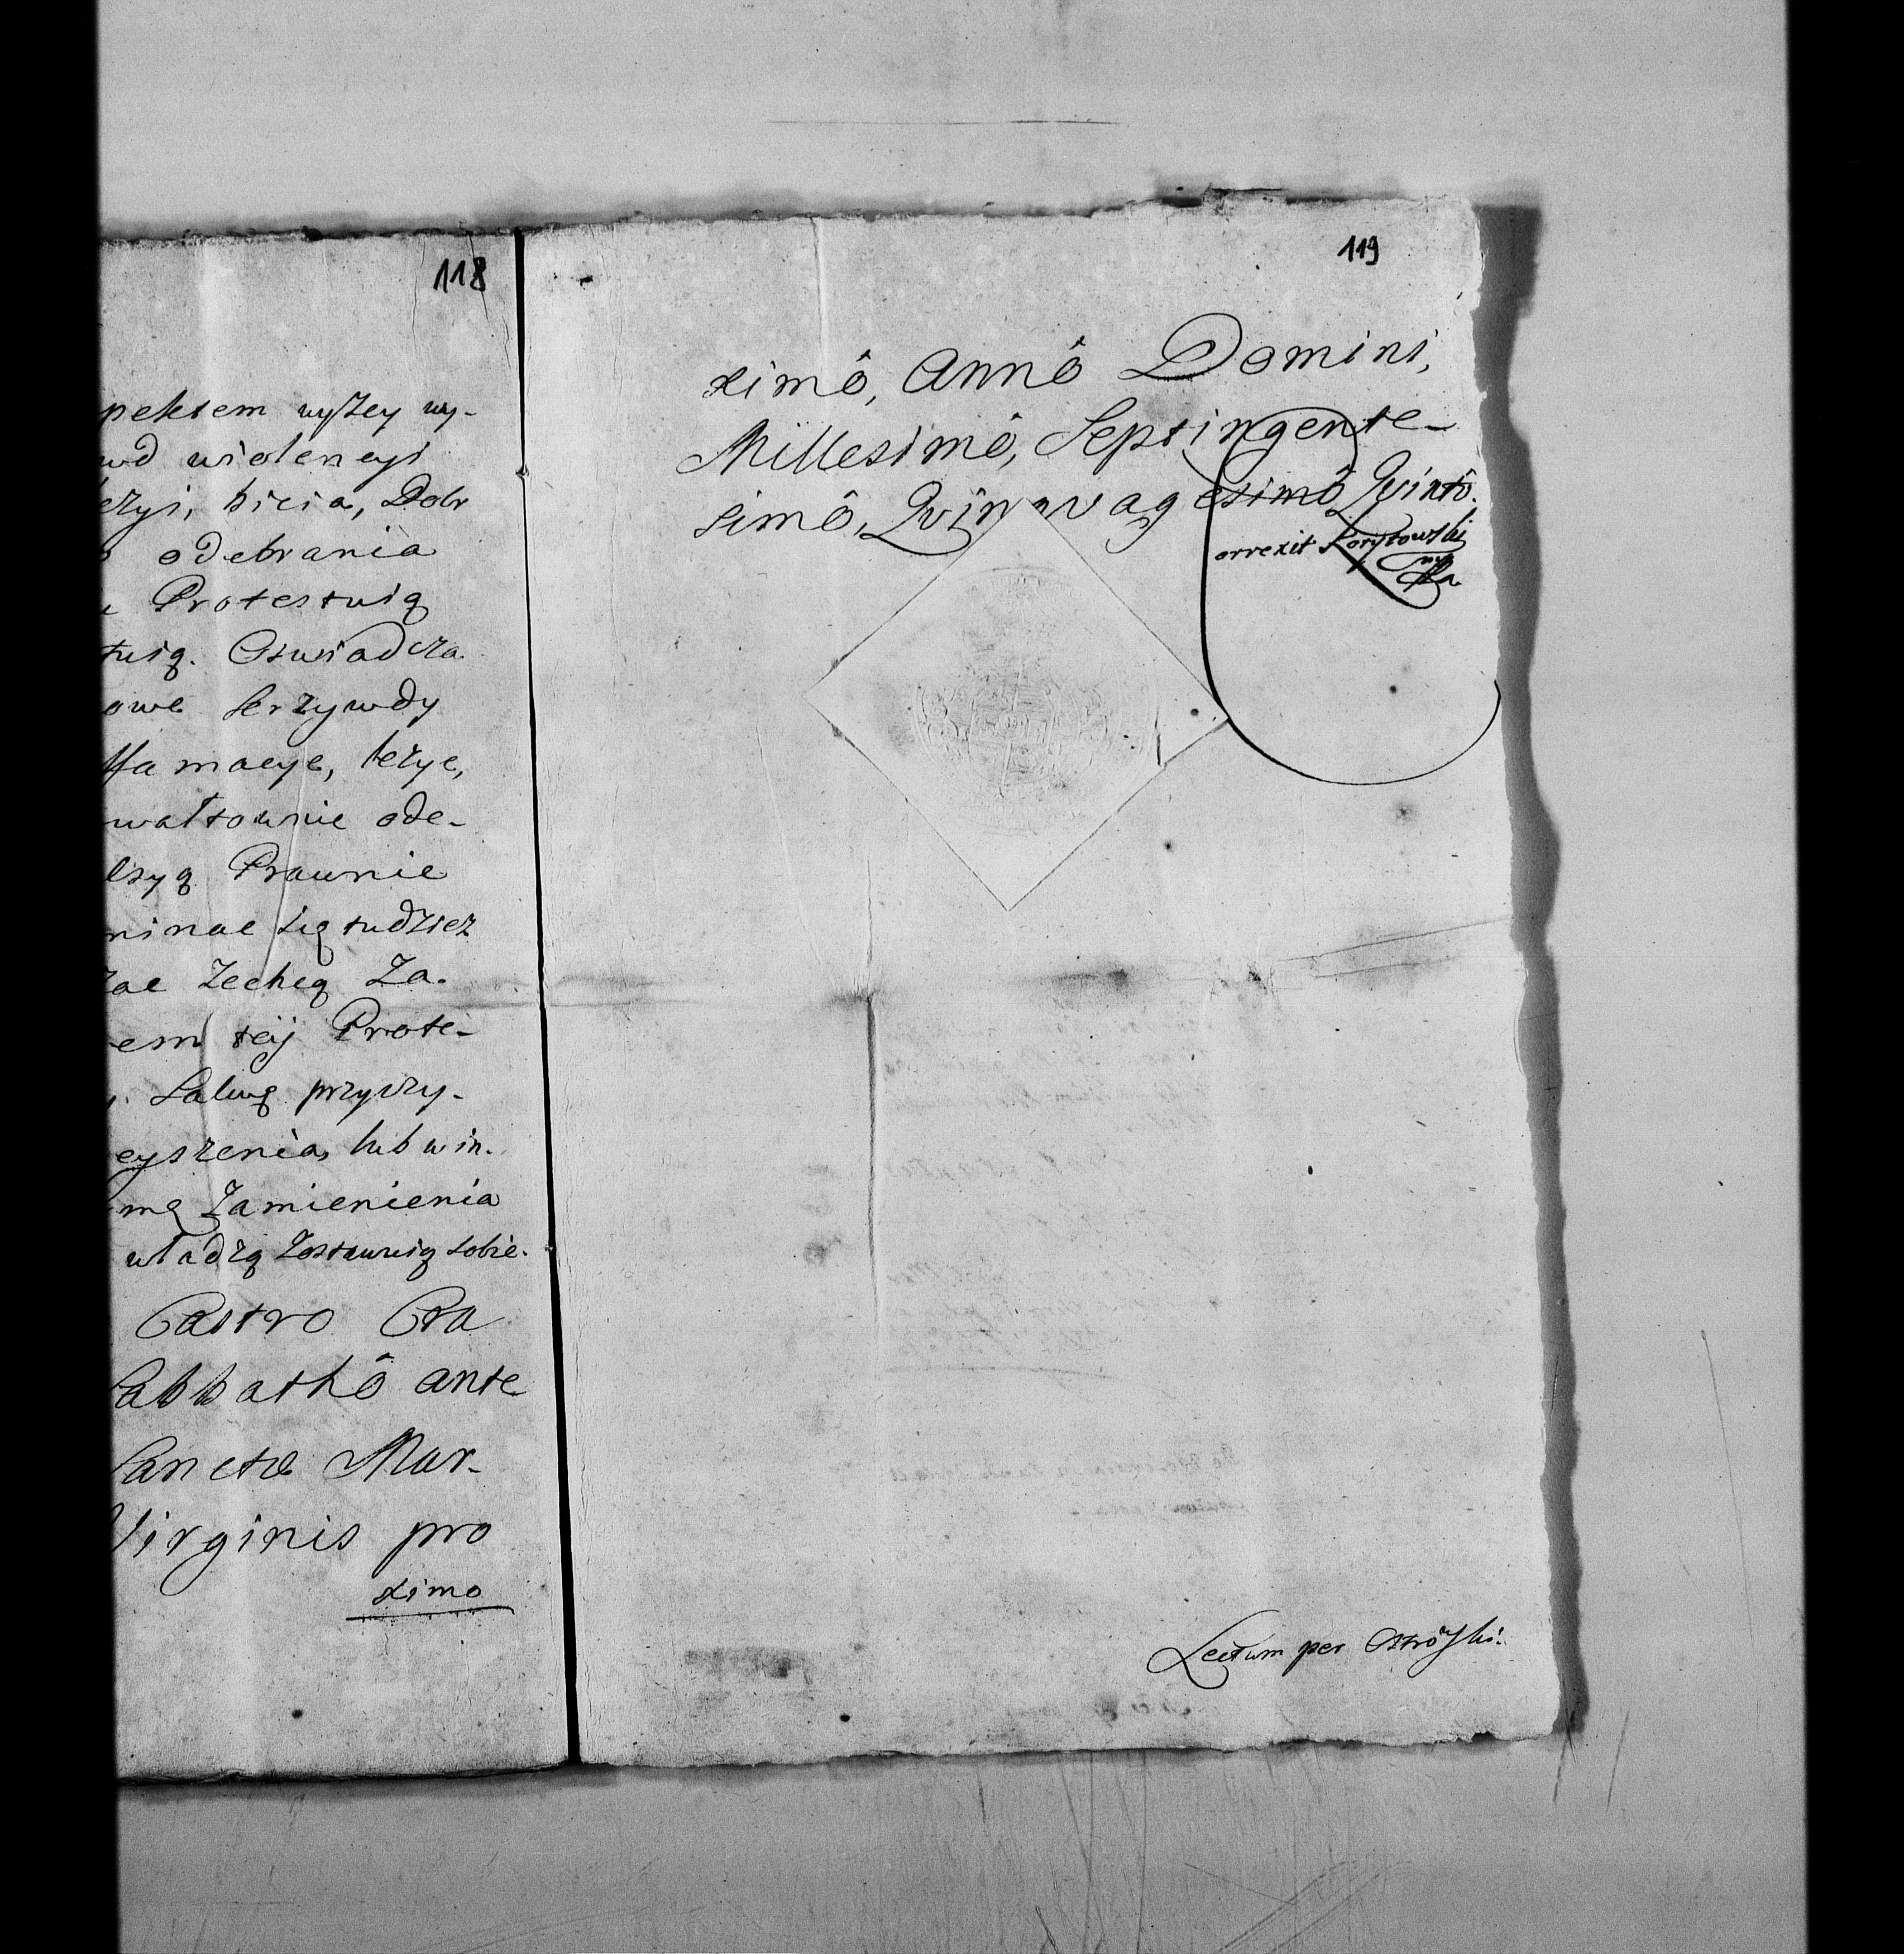 118
pektem wyżey wy-
wd wiolencyi
bicia, Dobr
odebrania
Protestuią
tuią. Oswiadcza
owe krzywdy
ffamacye, lezye,
wałtownie ode-
Prawnie
minac się tudziez
zac Zechcą Za-
em teÿ Prote-
Salwą przyczy-
eyszenia, lub win-
mę Zamienienia
władzą Zostawuią sobie.
Castro Cra
Sabbathô ante
Sanctæ Mar-
Virginis pro
ximo
119
ximô, Annô Domini,
Millesimô, Septingente-
simô, Qvinqvagesimô Qvintô.
Correxit Korytowski
mpa
Lectum per Ostrowski.